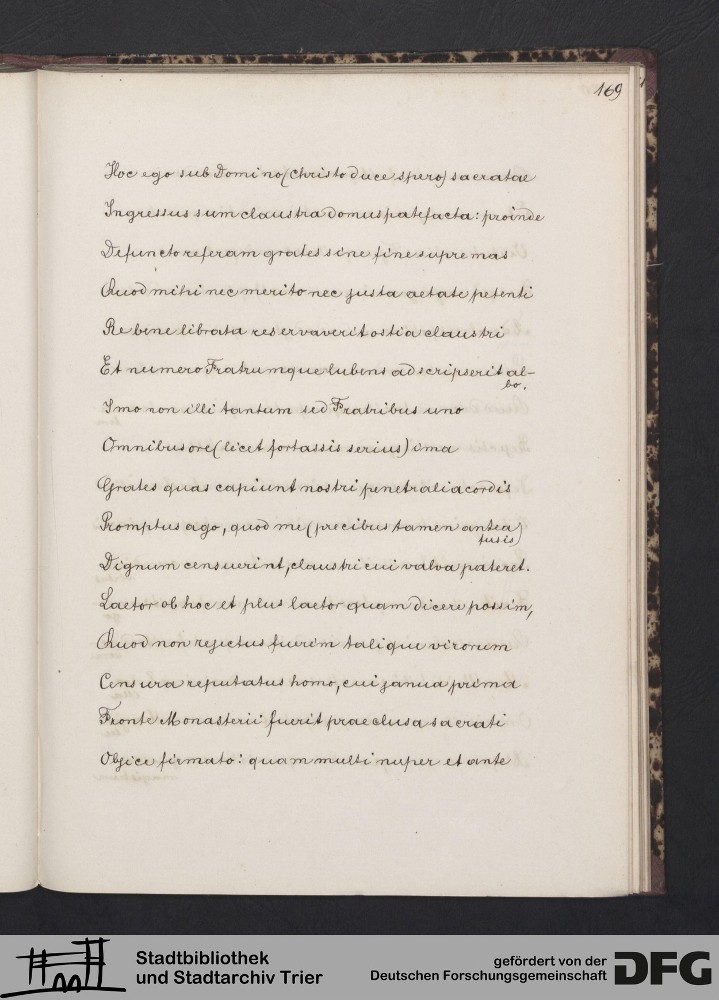 169
Hoc ego sub Domino (Christo duce spero) sacratae
Ingressus sum claustra domus patefacta: proinde
Defuncto referam grates sine fine supremas
Quod mihi nec merito nec justa aetate petenti
Re bene librata reservaverit ostia claustri
Et numero Fratrumque lubens adscripserit al-
bo.
Imo non illi tantum sed Fratribus uno
Omnibus ore (licet fortassis serius) ima
Grates quas capiunt nostri penetralia cordis
Promptus ago, quod me (precibus tamen antea
fusis)
Dignum censuerint, claustri cui valva pateret.
Laetor ob hoc et plus laetor quam dicere possim,
Quod non rejectus fuerim talique virorum
Censura reputatus homo, cui janua prima
Fronte Monasterii fuerit praeclusa sacrati
Objice firmato: quam multi nuper et ante
Stadtbibliothek
und Stadtarchiv Trier
gefördert von der
Deutschen Forschungsgemeinschaft
DFG